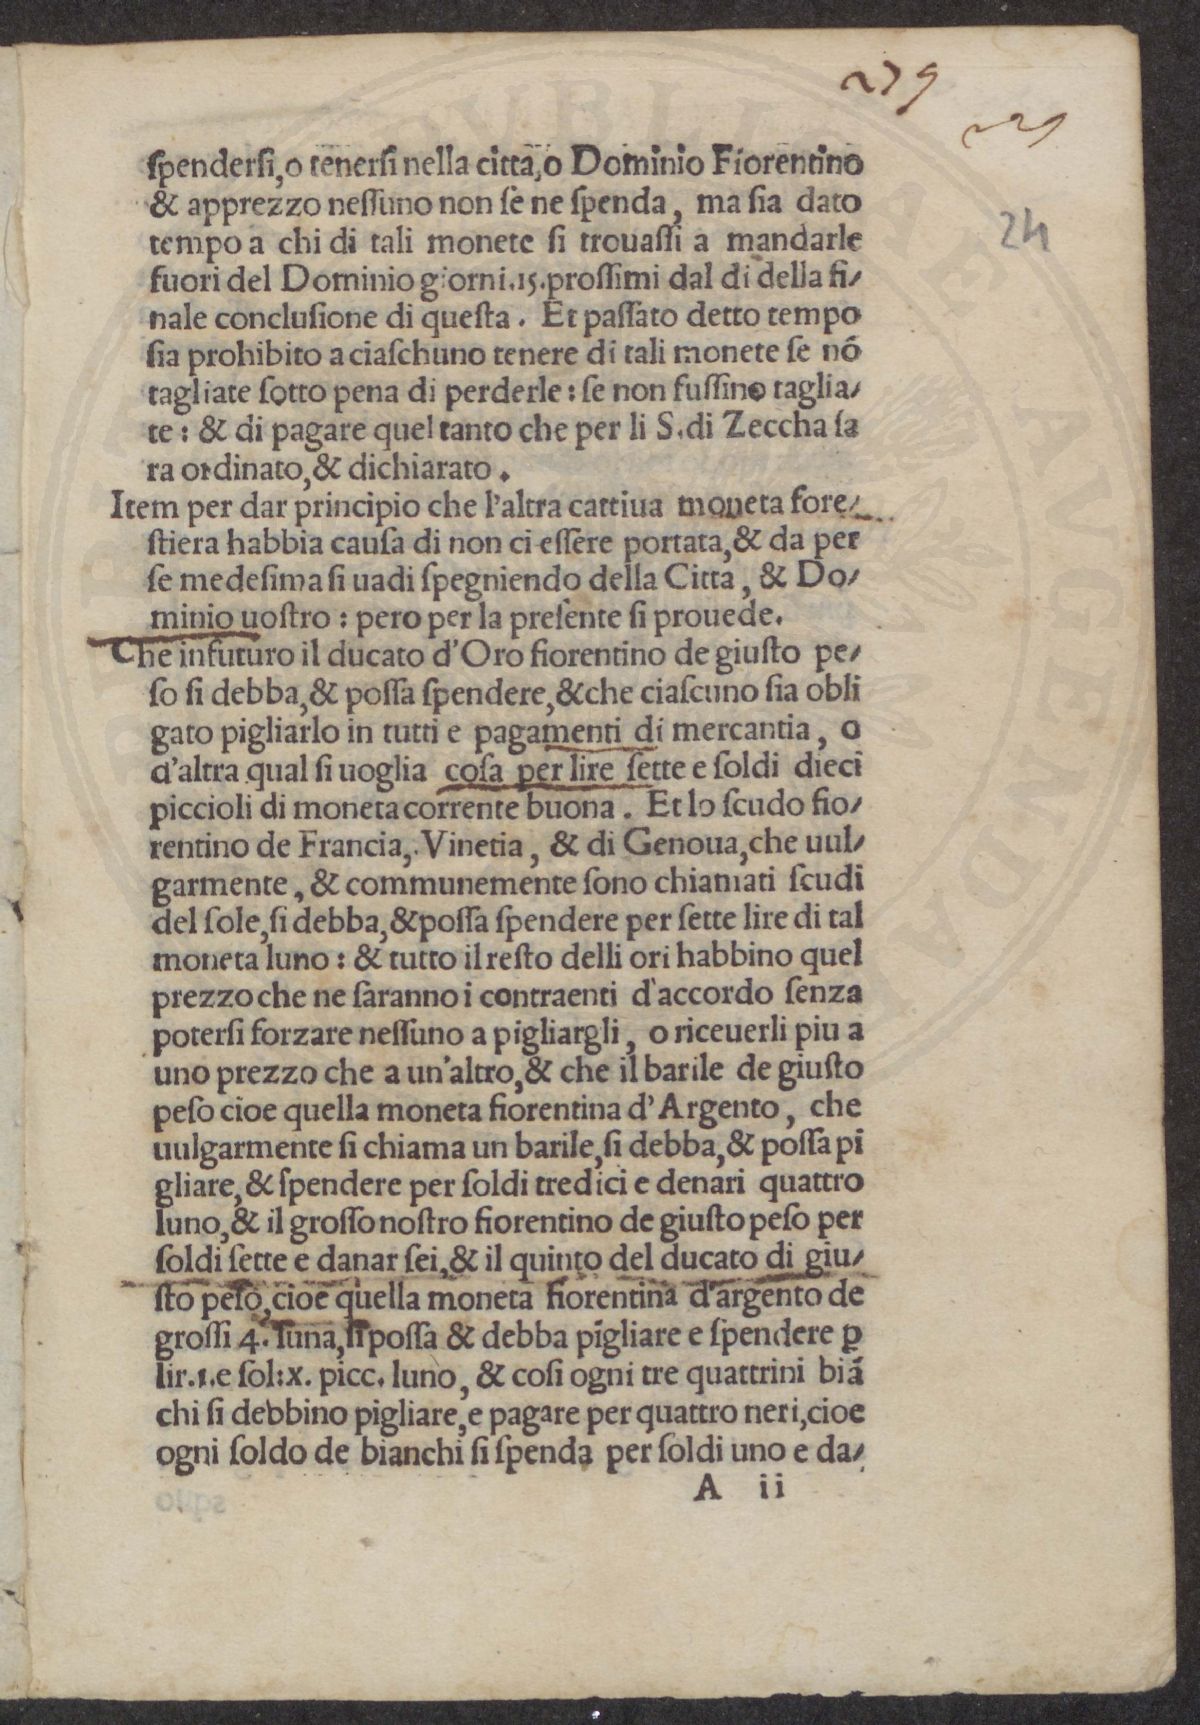 279
229
24
spendersi, o tenersi nella citta, o Dominio Fiorentino
& apprezzo nessuno non se ne spenda, ma sia dato
tempo a chi di tali monete si trouassi a mandarle
fuori del Dominio giorni.15.prossimi dal di della fi/
nale conclusione di questa. Et passato detto tempo
sia prohibito a ciaschuno tenere di tali monete se nõ
tagliate sotto pena di perderle: se non fussino taglia/
te: & di pagare quel tanto che per li S.di Zeccha sa
ra ordinato, & dichiarato.
Item per dar principio che l'altra cattiua moneta fore/
stiera habbia causa di non ci essere portata, & da per
se medesima si uadi spegniendo della Citta, & Do/
minio uostro: pero per la presente si prouede.
Che infuturo il ducato d'Oro fiorentino de giusto pe/
so si debba, & possa spendere, &che ciascuno sia obli
gato pigliarlo in tutti e pagamenti di mercantia, o
d'altra qual si uoglia cosa per lire sette e soldi dieci
piccioli di moneta corrente buona. Et lo scudo fio/
rentino de Francia, Vinetia, & di Genoua, che uul/
garmente, & communemente sono chiamati scudi
del sole, si debba, &possa spendere per sette lire di tal
moneta luno: & tutto il resto delli ori habbino quel
prezzo che ne saranno i contraenti d'accordo senza
potersi forzare nessuno a pigliargli, o riceuerli piu a
uno prezzo che a un'altro, & che il barile de giusto
peso cioe quella moneta fiorentina d'Argento, che
uulgarmente si chiama un barile, si debba, & possa pi
gliare, & spendere per soldi tredici e denari quattro
luno, & il grosso nostro fiorentino de giusto peso per
soldi sette e danar sei, & il quinto del ducato di giu/
sto peso, cioe quella moneta fiorentina d'argento de
grossi 4. luna, si possa & debba pigliare e spendere ꝑ
lir.1.e sol:x. picc. luno, & cosi ogni tre quattrini biã
chi si debbino pigliare, e pagare per quattro neri, cioe
ogni soldo de bianchi si spenda per soldi uno e da/
A ii